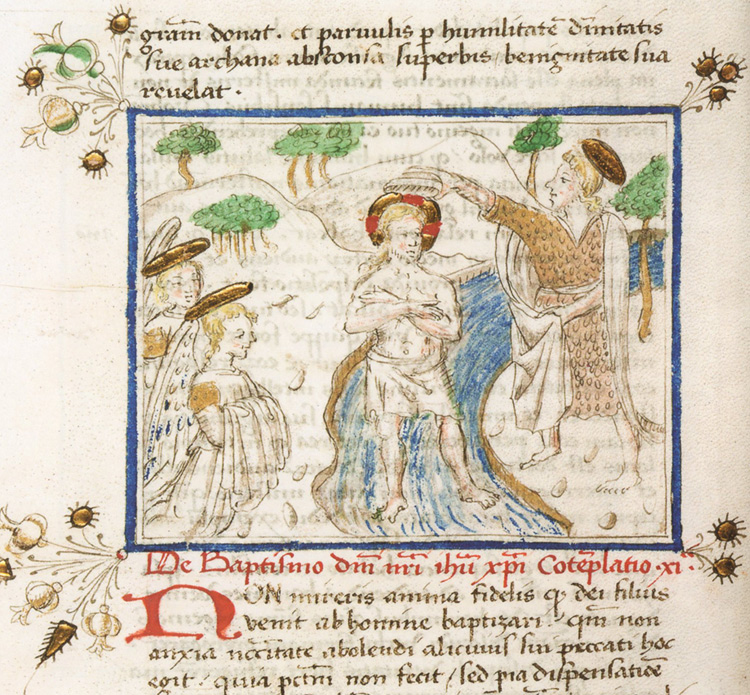 gram̄ donat · et paruulis p humilitatē diuinitatis
sue archana absconsa superbis benignitate sua
reuelat ·
De Baptismo dn̄i nr̄i ih̄u xp̄i Cōtēplatio · xi ·
NON mireris anima fidelis q̨ dei filius
venit ab homine baptizari · qm̄ non
anxia nc̄c̄itate abolendi alicuius sui peccati hoc
egit · quia pctm̄ non fecit / sed pia dispensatiōē